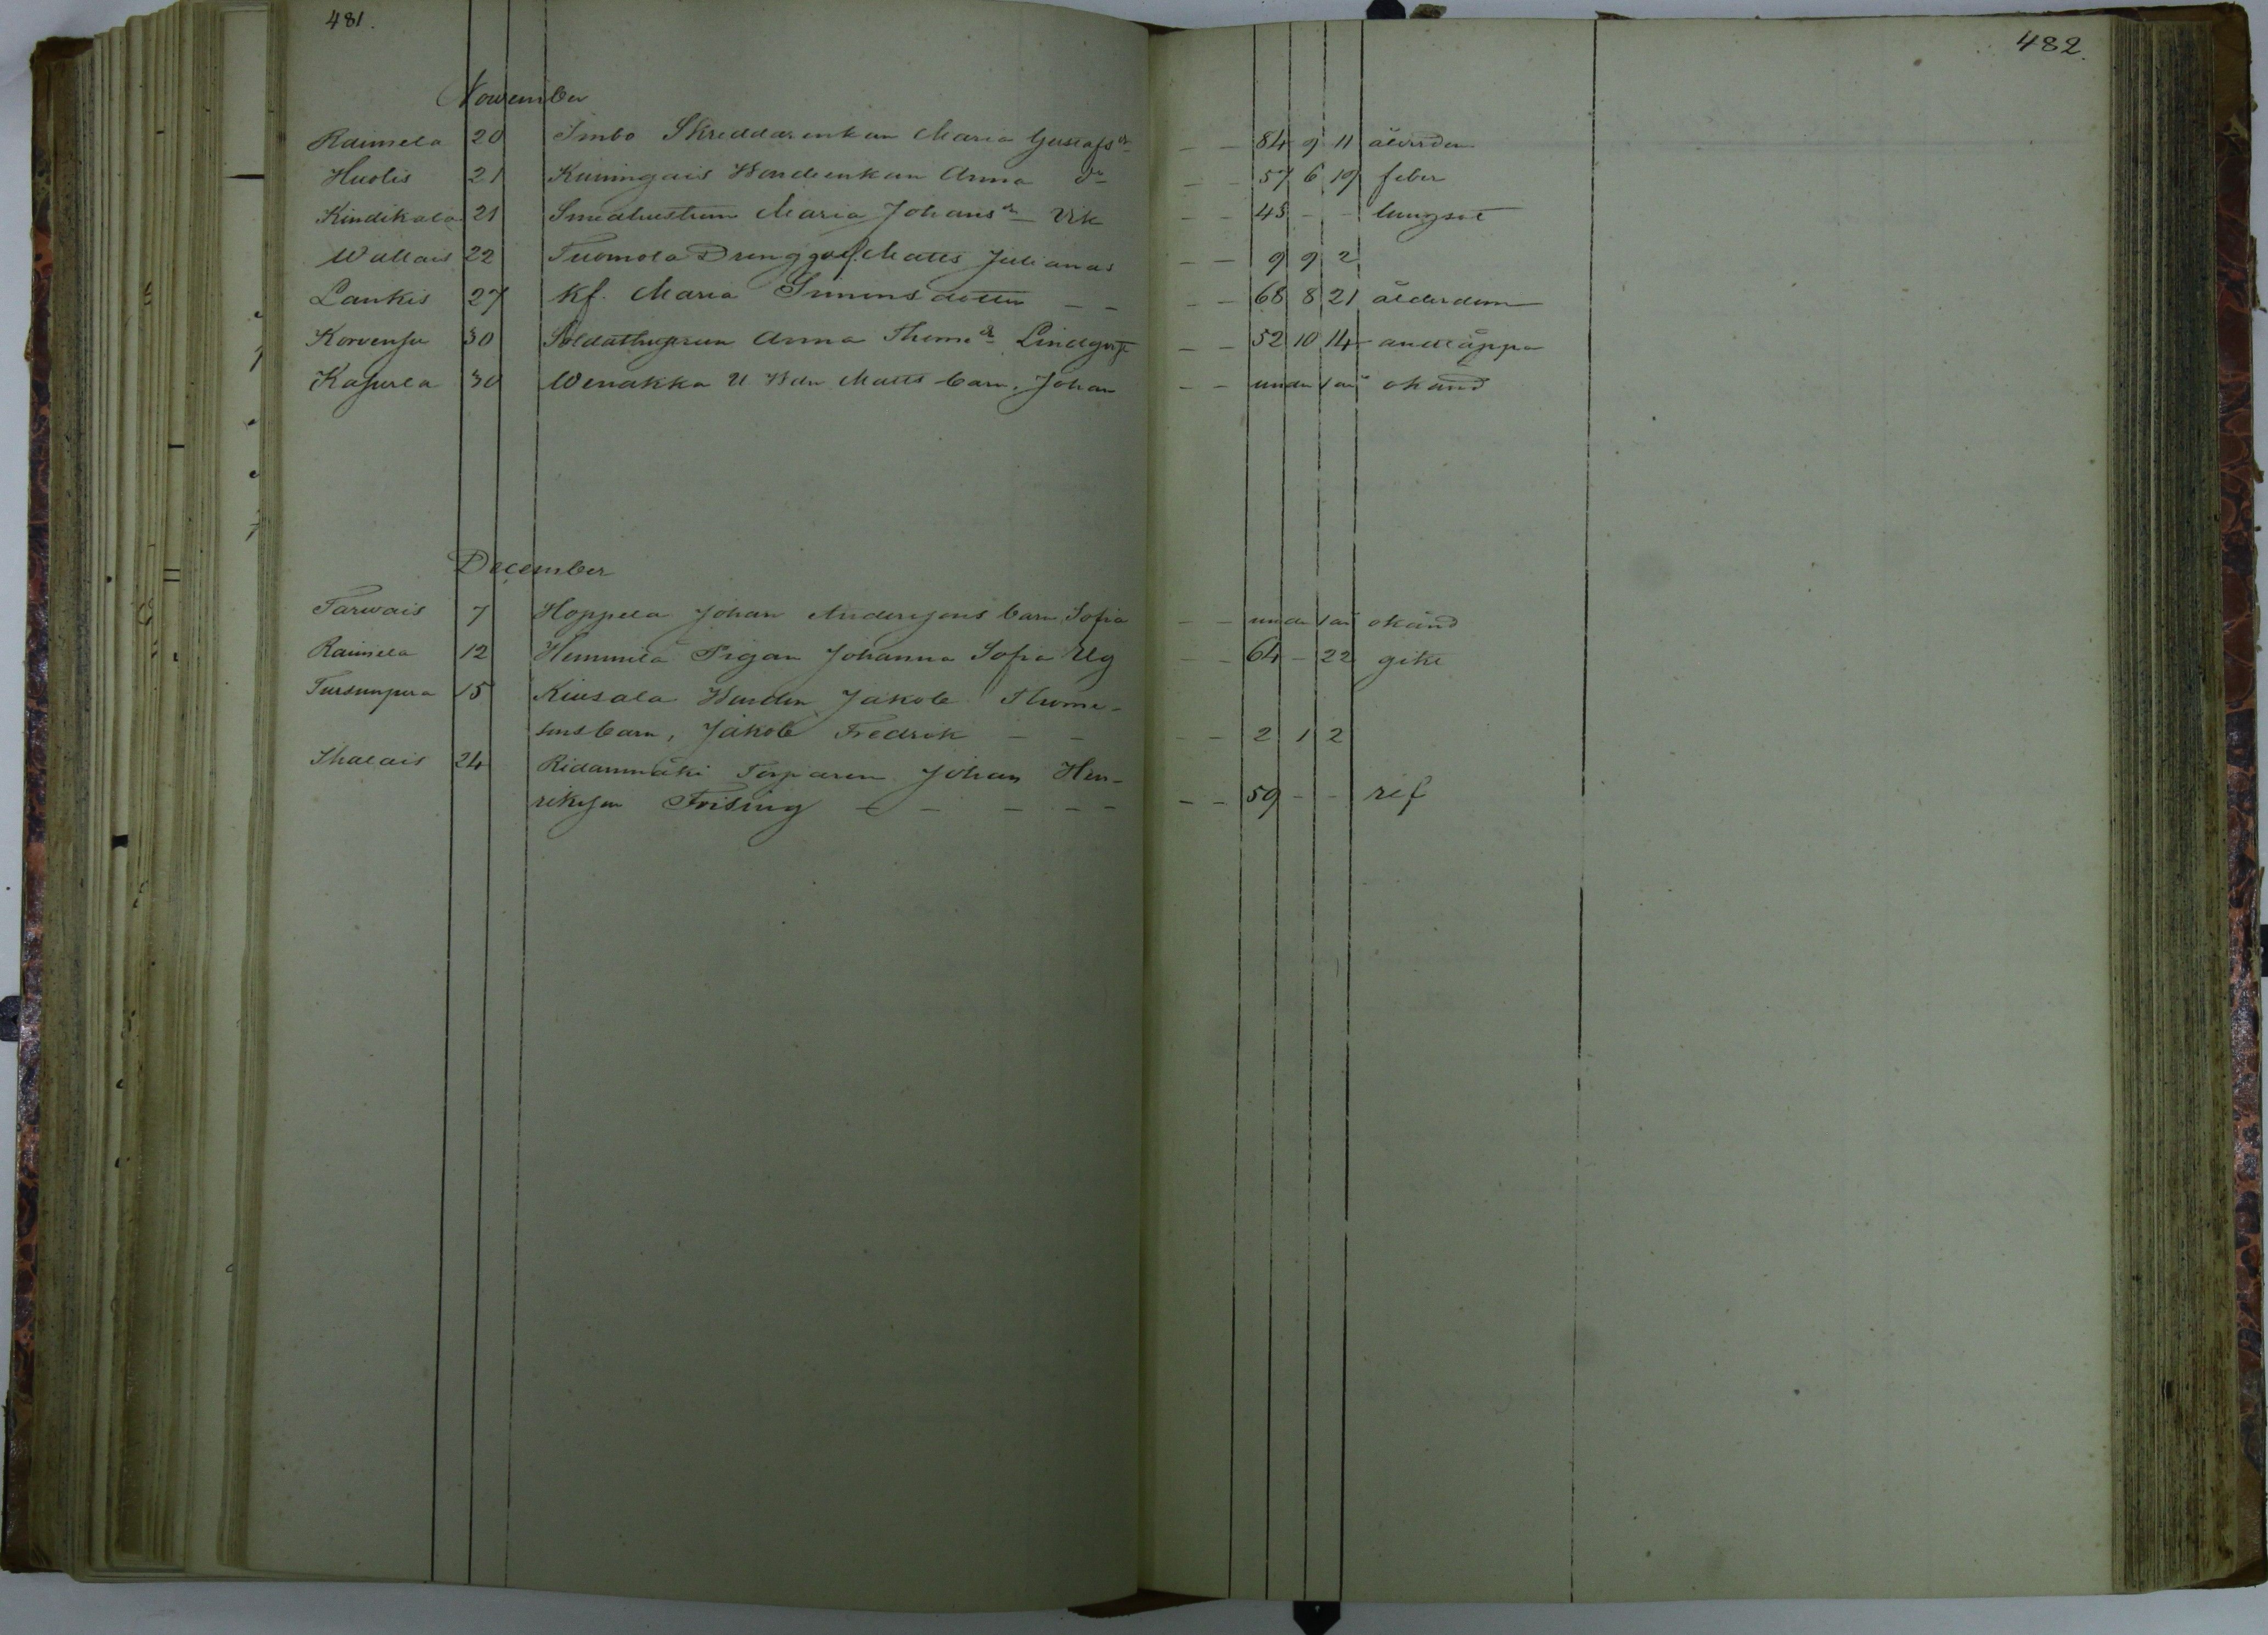 481.
482.
November
Raimela 20 Imbo Skreddarenkan Maria Gustafsdr — — 84 9 11 ålderdom
Huolis 21 Kuningais Bondeenkan Anna dr — — 57 6 19 feber
Kindikala 21 Smedhustrun Maria Johansdr Vik — — 45 — — lungsot
Wallais 22 Tuomola Drenggoss. Matts Julianas — — 9 9 2
Lankis 27 Kf. Maria Simonsdotter — — — — 68 8 21 ålderdom
Korvensu 30 Soldathustrun Anna Thomædr Lindqvist — — 52 10 14 andtäppa
Kahurla 30 Wenakka U. Bdn Matts barn, Johan — — under 1 år okänd
December
Tarvais 7 Hoppela Johan Anderssons barn Sofia — — under 1 år okänd
Raimela 12 Hemmilä Pigan Johanna Sofia Ug — — 64 — 22 gikt
Tursunpera 15 Kiusala Bonden Jakob Thome-
sons barn, Jakob Fredrik — — — — 2 1 2
Ihalais 24 Ridanmäki Torparen Johan Hen-
riksson Frising — — — — — — 59 — — ref